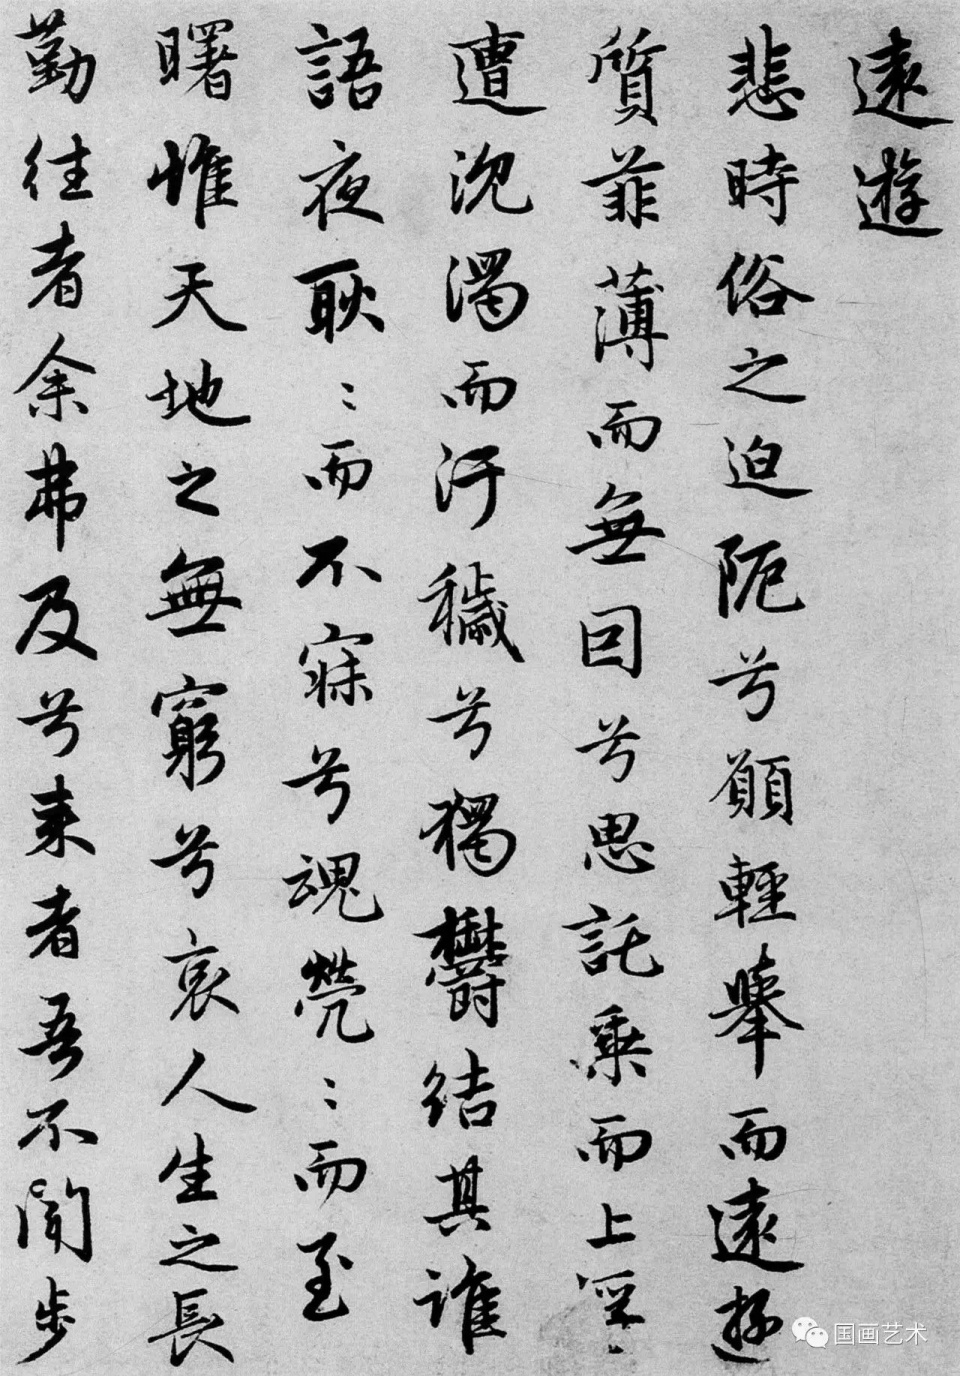 遠遊
悲時俗之迫阨兮願輕舉而遠遊
質菲薄而無因兮思託乘而上浮
遭沈濁而汙穢兮獨鬱結其誰
語夜耿〻而不寐兮魂煢〻而至
曙惟天地之無窮兮哀人生之長
勤往者余弗及兮来者吾不聞步
国画艺术